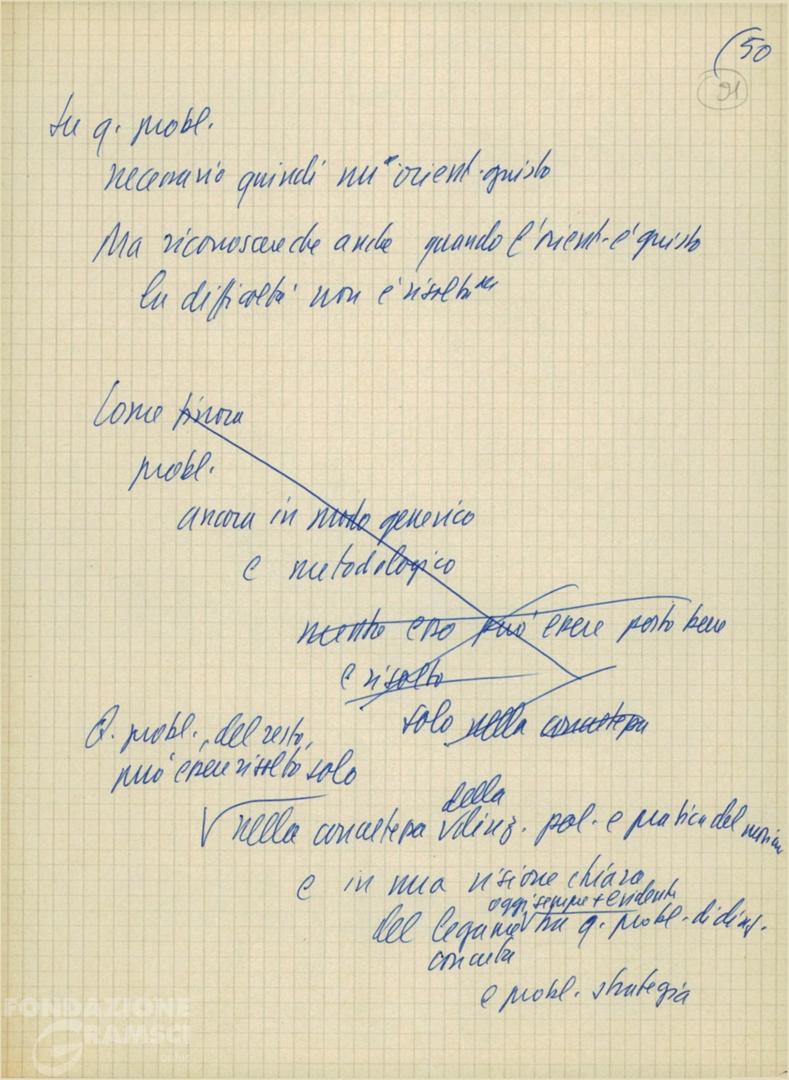 (50
91
Su q. probl.
necessario quindi un orient. giusto
Ma riconoscere che anche quando l'orient. è giusto
la difficoltà non è risolta
Come finora
probl.
ancora in modo generico
e metodologico
mentre esso può essere posto bene
e risolto
solo nella concretezza
Q. probl., del resto,
può essere risolto solo
nella concretezza della direz. pol. e pratica del
e in una visione chiara
oggi sempre + evidente
del legame tra q. probl. di direz.
concreta
e probl. strategia
FONDAZIONE
GRAMSCI